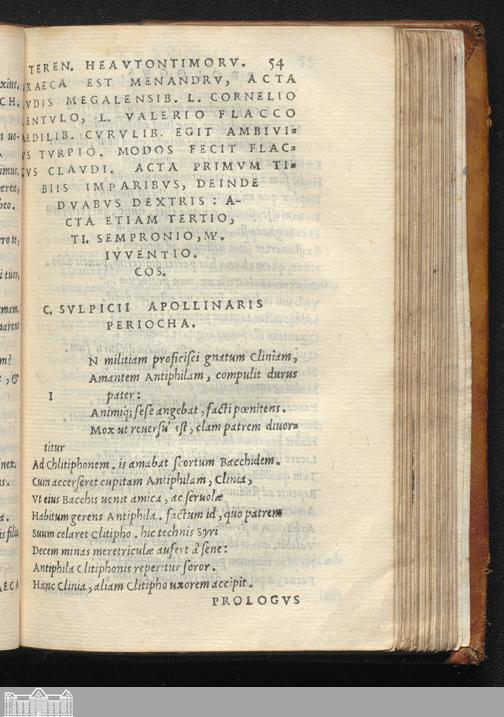 TEREN. HEAVTONTIMORV. 54
RAECA EST MENANDRV, ACTA
VDIS MEGALENSIB. L. CORNELIO
ENTVLO, L. VALERIO FLACCO
AEDILIB. CVRVLIB. EGIT AMBIVI=
VS TVRPIO. MODOS FECIT FLAC=
CVS CLAVDI. ACTA PRIMVM TI=
BIIS IMPARIBVS, DEINDE
DVABVS DEXTRIS: A=
CTA ETIAM TERTIO,
TI. SEMPRONIO, M.
IVVENTIO.
COS.
C. SVLPICII APOLLINARIS
PERIOCHA.
N militiam proficisci gnatum Cliniam,
Amantem Antiphilam, compulit durus
I pater:
Animiq; sese angebat, facti pœnitens.
Mox ut reuersu' est, clam patrem diuor=
titur
Ad Chlitiphonem. is amabat scortum Bacchidem.
Cum accerseret cupitam Antiphilam, Clinia,
Vt eius Bacchis uenit amica, ac seruolæ
Habitum gerens Antiphila. factum id, quo patrem
Suum celaret Clitipho. hic technis Syri
Decem minas meretriculæ aufert à sene:
Antiphila Clitiphonis reperitur soror.
Hanc Clinia, aliam Clitipho uxorem accipit.
PROLOGVS